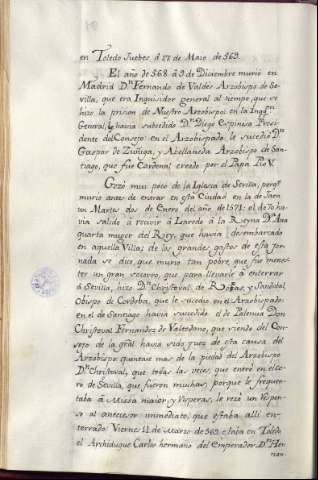 en Toledo Jueves á 27 de Maio de 569.
El año de 568 á 9 de Diciembre murio en
Madrid Dn Fernando de Valdes Arzobispo de Se-
villa, que era Inquisidor general al tiempo que se
hizo la prision de Nuestro Arzobispo: en la Inqn.
General, le havia subcedido Dn Diego Espinosa Presi-
dente del Consejo: en el Arzobispado, le sucedio Dn
Gaspar de Zuñiga, y Abellaneda Arzobispo de San-
tiago, que fue Cardenal creado por el Papa Pio V.
Gozó mui poco de la Iglesia de Sevilla, porqe.
murio antes de entrar en esta Ciudad en la de Jaen
un Martes dos de Enero del año de 1571: el de 70 ha-
via salido á recivir á Laredo á la Reyna Da Ana
quarta muger del Rey, que havia desembarcado
en aquella Villa; de los grandes gastos de esta jor-
nada se dice, que murio tan pobre, que fue menes-
ter un gran socorro, que para llevarle á enterrar
á Sevilla, hizo Dn Christoval de Roxas, y Sandobal
Obispo de Cordoba, que le sucedio en el Arzobispado:
en el de Santiago havia sucedido el de Palencia Don
Christoval Fernandez de Valtodano, que siendo del Con-
sejo de la gral havia sido juez de esta causa del
Arzobispo: cuentase mas de la piedad del Arzobispo
Dn Christoval, que todas las veces, que entró en el co-
ro de Sevilla, que fueron muchas, porque le frequen-
taba á Missa maior y Visperas, le rezó un respon-
so al antecesor inmediato, que estaba alli en-
terrado: Viernes 12 de Marzo de 569 estaba en Toledo
el Archiduque Carlos hermano del Emperador Dn Her-